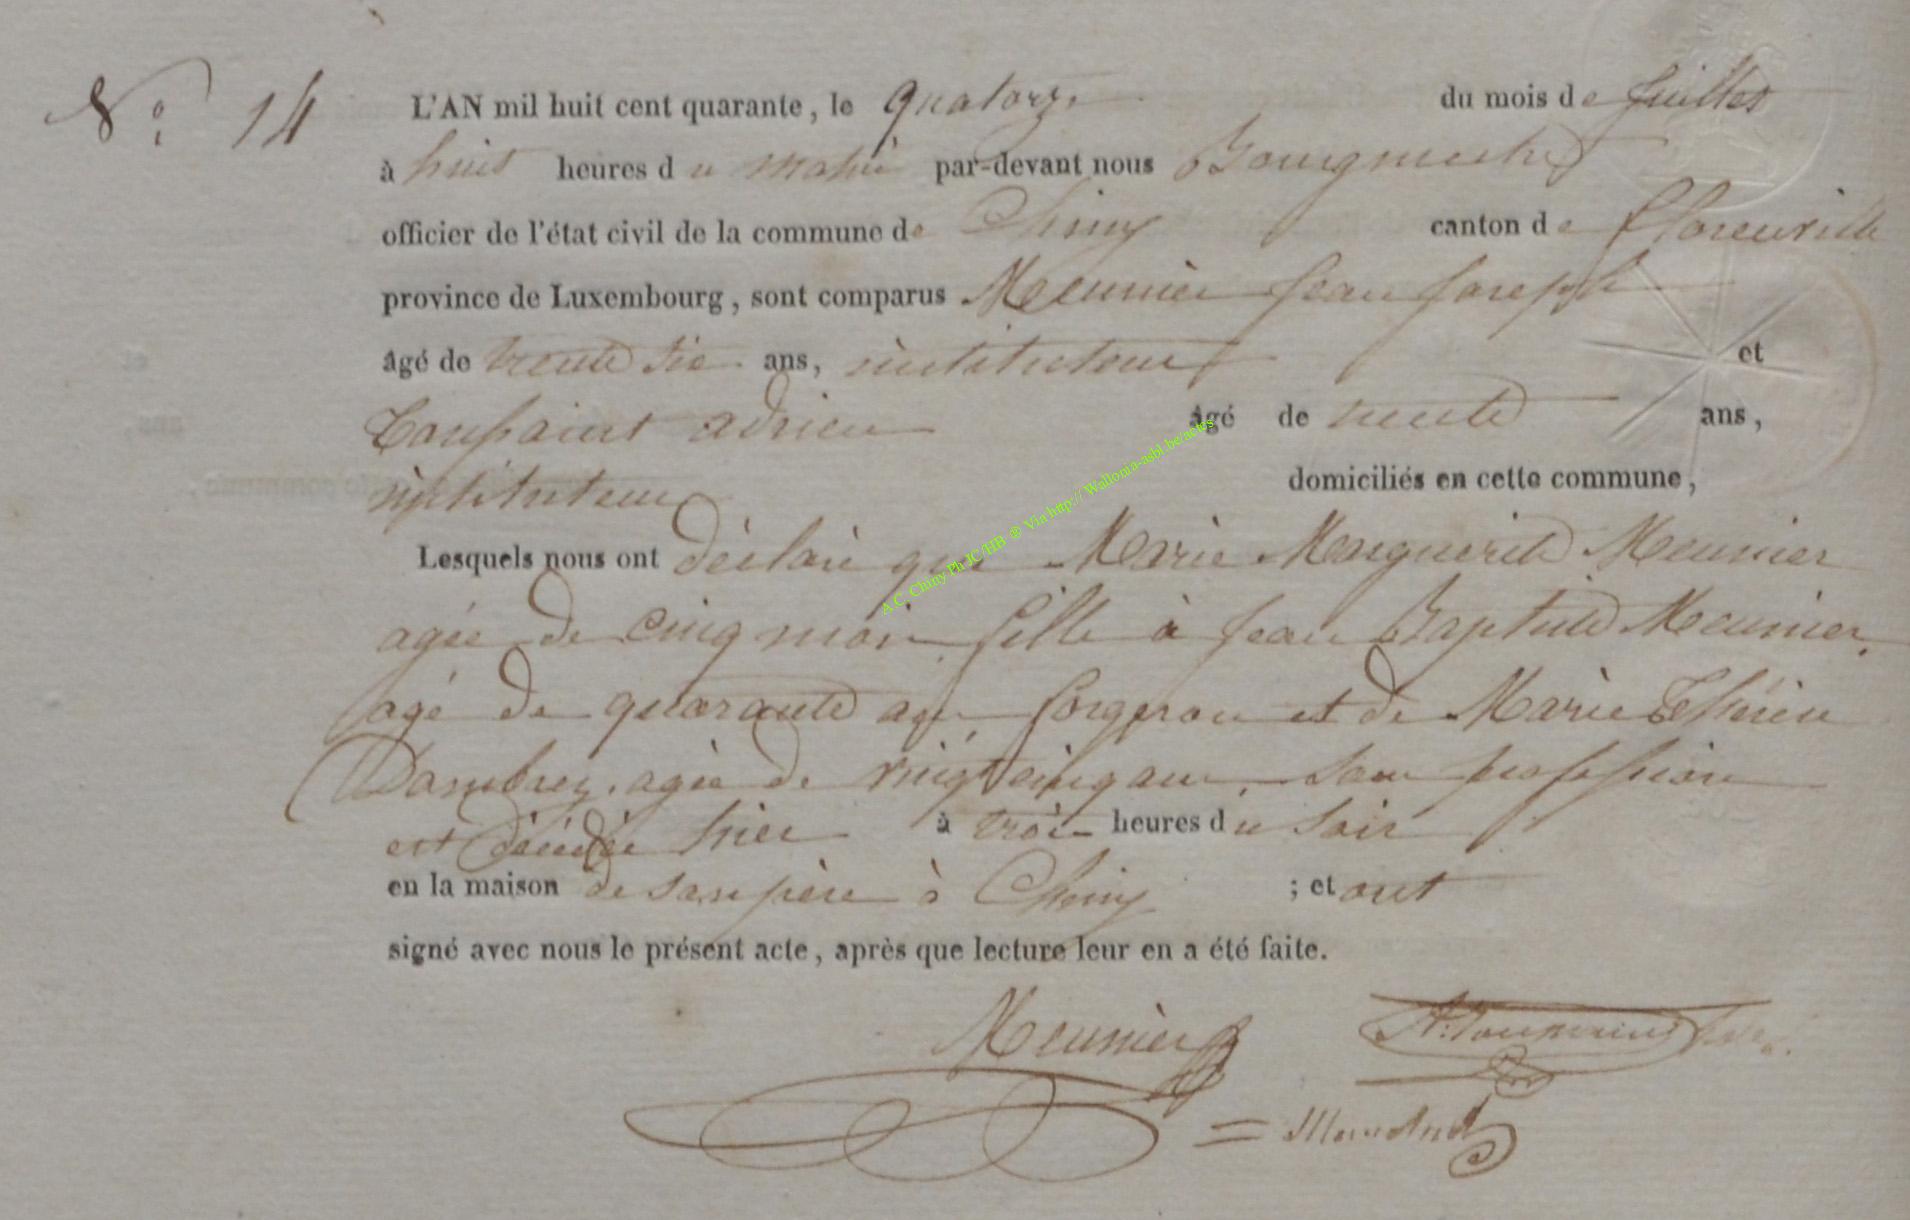 N° 14
L'AN mil huit cent quarante, le quatorze du mois de juillet
à huit heures du matin par-devant nous Bourgmestre
officier de l'état civil de la commune de Chiny canton de Florenville
province de Luxembourg, sont comparus Meunier Jean Joseph
âgé de trente six ans, instituteur et
Toussaint adrien âgé de trente ans,
instituteur domiciliés en cette commune,
Lesquels nous ont déclaré que Marie Marguerite Meunier
agée de cinq mois fille à Jean Baptiste Meunier,
agé de quarante ans forgeron et de Marie Thérèse
Dambrez, agée de vingt cinq ans, sans profession
est décédée hier à trois heures du soir
en la maison de son père à Chiny ; et ont
signé avec nous le présent acte, après que lecture leur en a été faite.
Meunier A. Toussaint
A.C. Chiny Ph JC/HB ® Via http:// Wallonia-asbl.be/actes